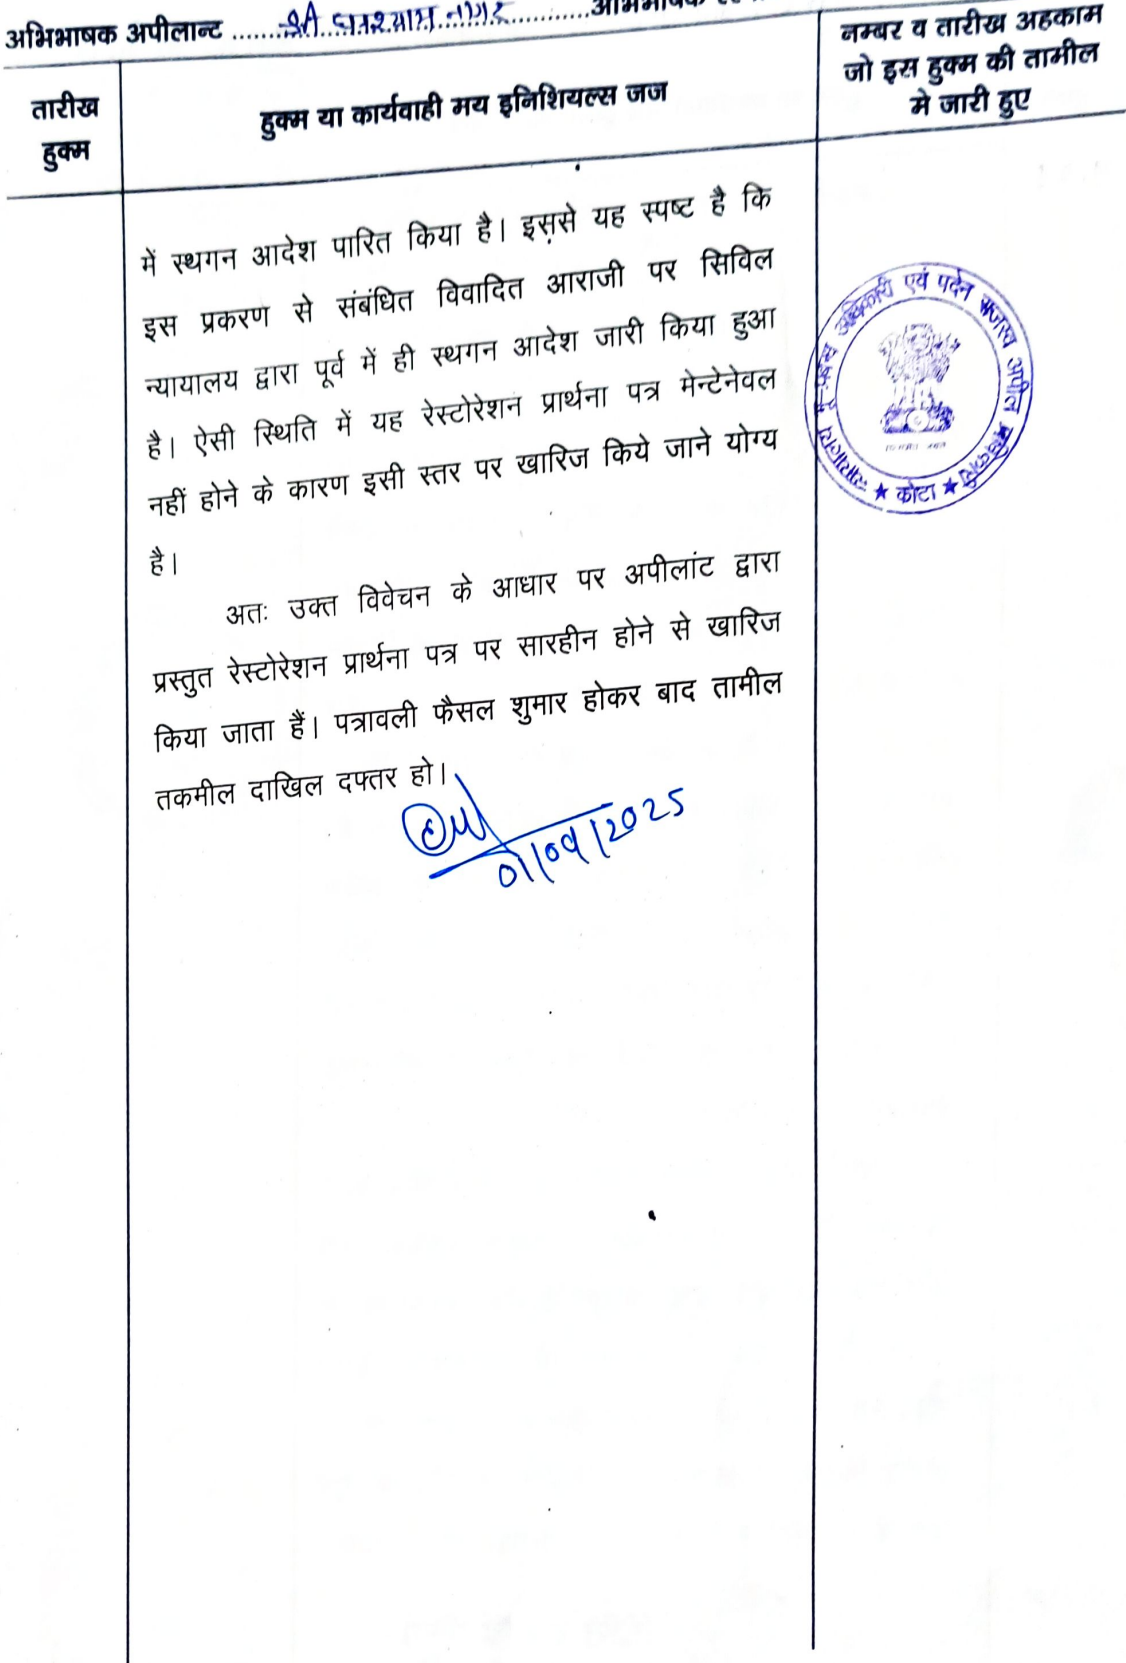 अभिभाषक अपीलान्ट ........श्री घनश्याम नागर............अभिभाषक
तारीख
हुक्म
हुक्म या कार्यवाही मय इनिशियल्स जज
नम्बर व तारीख अहकाम
जो इस हुक्म की तामील
मे जारी हुए
में स्थगन आदेश पारित किया है। इससे यह स्पष्ट है कि
इस प्रकरण से संबंधित विवादित आराजी पर सिविल
न्यायालय द्वारा पूर्व में ही स्थगन आदेश जारी किया हुआ
है। ऐसी स्थिति में यह रेस्टोरेशन प्रार्थना पत्र मेन्टेनेवल
नहीं होने के कारण इसी स्तर पर खारिज किये जाने योग्य
है।
अतः उक्त विवेचन के आधार पर अपीलांट द्वारा
प्रस्तुत रेस्टोरेशन प्रार्थना पत्र पर सारहीन होने से खारिज
किया जाता हैं। पत्रावली फैसल शुमार होकर बाद तामील
तकमील दाखिल दफ्तर हो।
01/09/2025
न्यायालय भू-प्रबन्ध अधिकारी एवं पदेन राजस्व अपील अधिकारी
★ कोटा ★